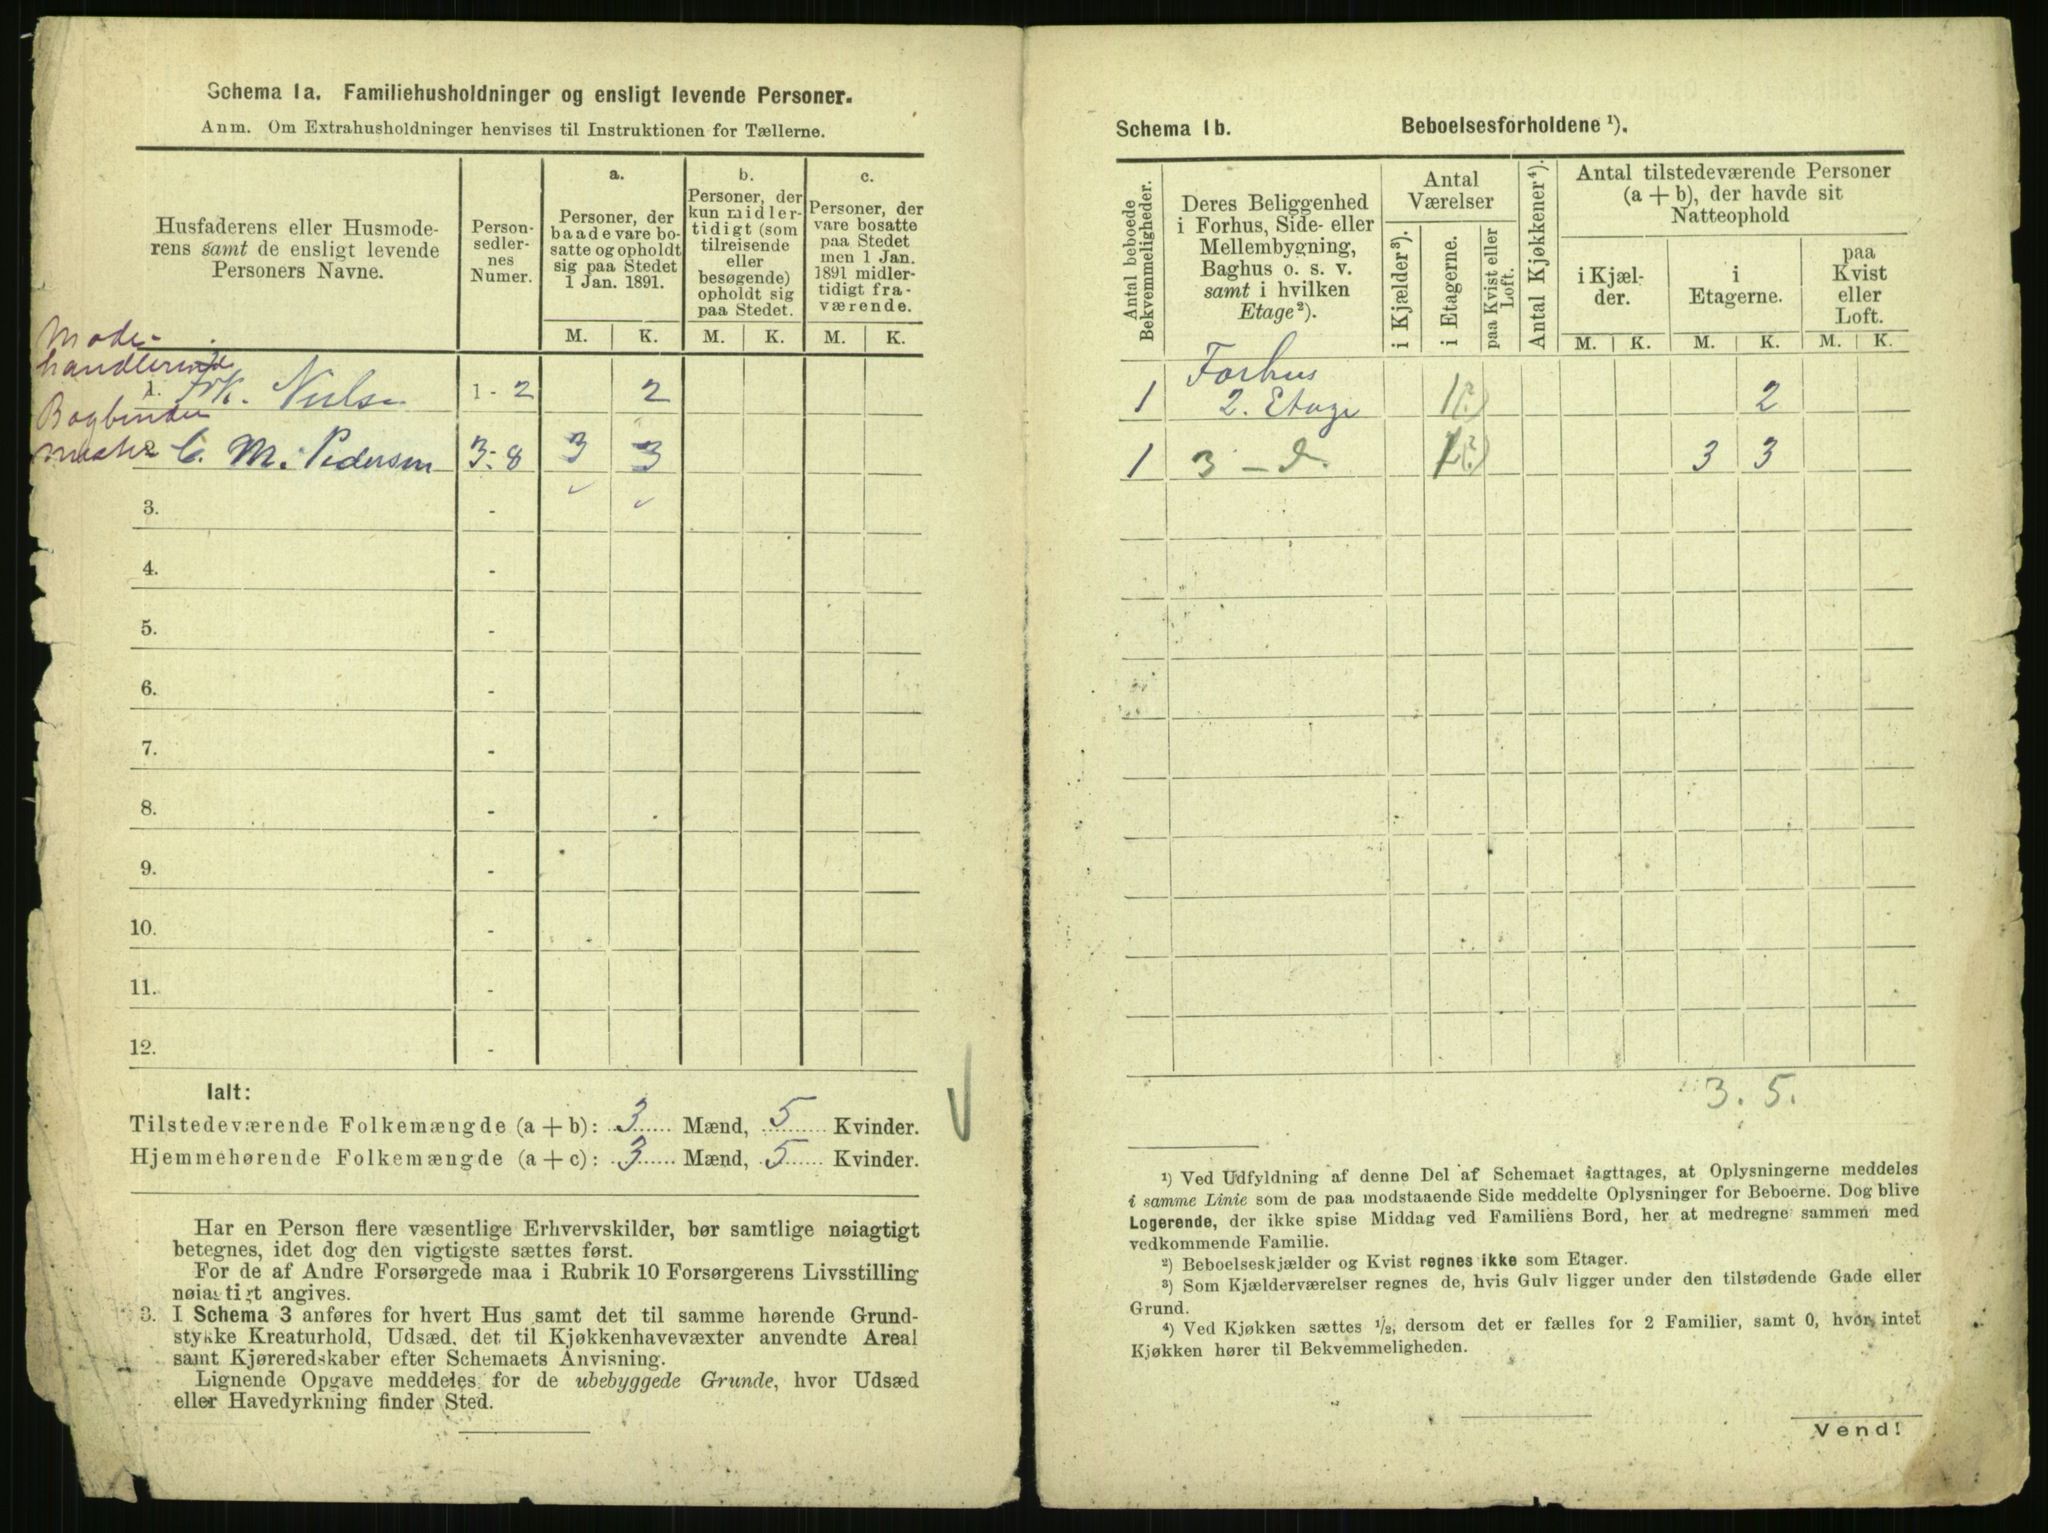 Schema 1a. Familiehusholdninger og ensligt levende Personer.
Anm. Om Extrahusholdninger henvises til Instruktionen for Tællerne.
Husfaderens eller Husmode-
rens samt de ensligt levende
Personers Navne.
Person-
sedler-
nes
Numer.
a.
Personer, der
baade vare bo-
satte og opholdt
sig paa Stedet
1 Jan. 1891.
b.
Personer, der
kun midler-
tidigt (som
tilreisende
eller
besøgende)
opholdt sig
paa Stedet.
c.
Personer, der
vare bosatte
paa Stedet
men 1 Jan.
1891 midler-
tidigt fra-
værende.
M. K. M. K. M. K.
Mode-
handlerinde
1. Frk. Nielsen 1-2 2
Bogbinder
mester 2 C. M. Pedersen 3-8 3 3
3. -
4. -
5. -
6. -
7. -
8. -
9. -
10. -
11. -
12. -
Ialt:
Tilstedeværende Folkemængde (a + b): 3 Mænd, 5 Kvinder.
Hjemmehørende Folkemængde (a + c): 3 Mænd, 5 Kvinder.
Har en Person flere væsentlige Erhvervskilder, bør samtlige nøiagtigt
betegnes, idet dog den vigtigste sættes først.
For de af Andre Forsørgede maa i Rubrik 10 Forsørgerens Livsstilling
nøiagtigt angives.
3. I Schema 3 anføres for hvert Hus samt det til samme hørende Grund-
stykke Kreaturhold, Udsæd, det til Kjøkkenhavevæxter anvendte Areal
samt Kjøreredskaber efter Schemaets Anvisning.
Lignende Opgave meddeles for de ubebyggede Grunde, hvor Udsæd
eller Havedyrkning finder Sted.
Schema 1b. Beboelsesforholdene ¹).
Antal beboede
Bekvemmeligheder.
Deres Beliggenhed
i Forhus, Side- eller
Mellembygning,
Baghus o. s. v.
samt i hvilken
Etage ²).
Antal
Værelser
i Kjælder ³).
i Etagerne.
paa Kvist eller
Loft.
Antal Kjøkkener ⁴).
Antal tilstedeværende Personer
(a + b), der havde sit
Natteophold
i Kjæl-
der.
i
Etagerne.
paa
Kvist
eller
Loft.
M. K. M. K. M. K.
1 Forhus
2. Etage 1(?) 2
1 3 - d. (?) 3 3
3. 5.
¹) Ved Udfyldning af denne Del af Schemaet iagttages, at Oplysningerne meddeles
i samme Linie som de paa modstaaende Side meddelte Oplysninger for Beboerne. Dog blive
Logerende, der ikke spise Middag ved Familiens Bord, her at medregne sammen med
vedkommende Familie.
²) Beboelseskjælder og Kvist regnes ikke som Etager.
³) Som Kjælderværelser regnes de, hvis Gulv ligger under den tilstødende Gade eller
Grund.
⁴) Ved Kjøkken sættes ½, dersom det er fælles for 2 Familier, samt 0, hvor intet
Kjøkken hører til Bekvemmeligheden.
Vend!